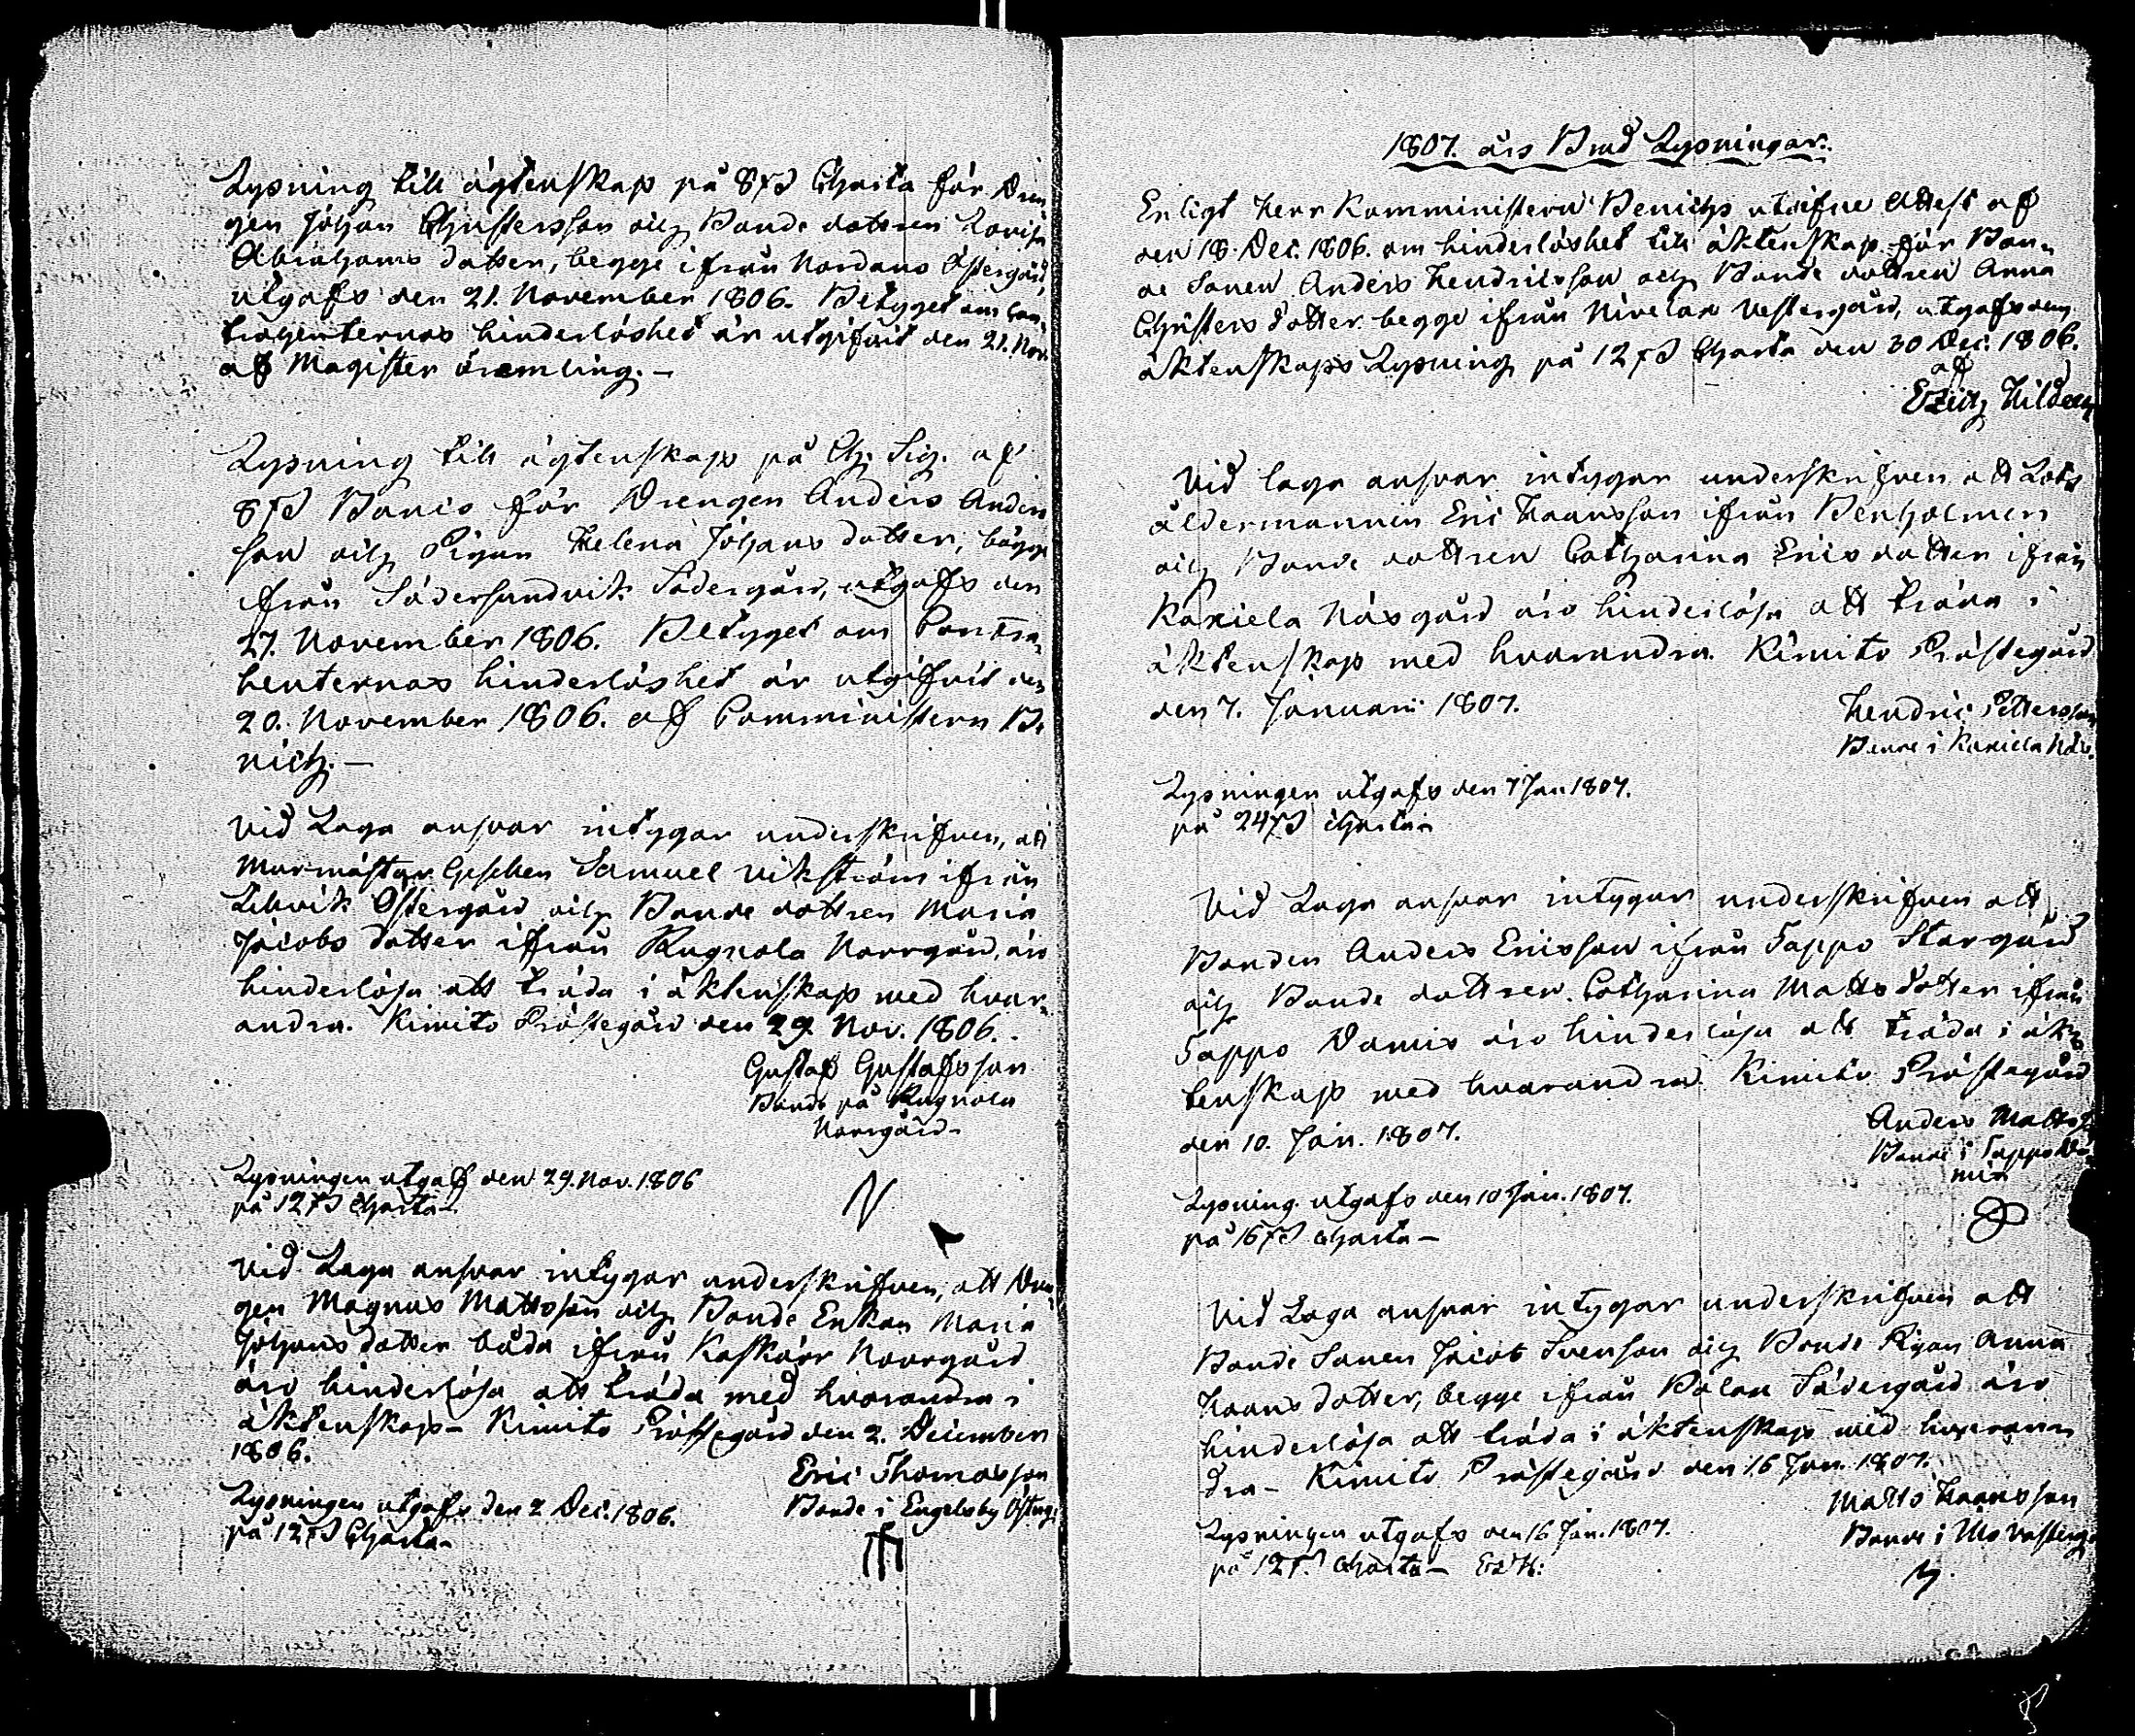 Lysning till ägtenskap på 8 β Charta för Drän
gen Johan Christersson och Bonde dottren Lovisa
Abrahams dotter, begge ifrån Nordanö Östergård,
utgafs den 21. November 1806. Betyget om Con-
trahenternas hinderlöshet är utgifvit den 21. Nov.
af Magister Öremling. –
Lysning till ägtenskap på Ch. Sig. af
8 β Banco för Drengen Anders Anders
son och Pigan Helena Johans dotter, bägge
ifrån Södersundvik Södergård, utgafs den
27. November 1806. Betyget om Contra-
henternas hinderlöshet är utgifvit den
20. November 1806. af Comministern Be
nich. –
Vid Laga ansvar intygar underskrifven, att
Murmästar Gesellen Samuel Vikström ifrån
Östergård och Bonde dottren Maria
Jacobs dotter ifrån Rugnola Norrgård, äro
hinderlösa att träda i äktenskap med hvar-
andra. Kimito Prästegård den 29 Nov. 1806.
Gustaf Gustafsson
Bonde på Rugnola
Norrgård –
Lysningen utgaf den 29. Nov. 1806
på 12 β Charta –
Vid Laga ansvar intygar underskrifven, att Drän
gen Magnus Mattsson och Bonde Enkan Maria
Johans dotter båda ifrån Kaskärr Norrgård
äro hinderlösa att träda med hvarandra i
äktenskap – Kimito Prästegård den 2. December
1806.
Eric Thomasson
Bonde i Engelsby Österg.
Lysningen utgafs den 2 Dec. 1806.
på 12 β Charta –
1807. års Brud Lysningar.
Enligt Herr Kamministern Benichs utgifne Attest af
den 18. Dec. 1806. om hinderlöshet till äktenskap för Bon-
de Sonen Anders Hendricsson och Bonde dottren Anna
Christers dotter begge ifrån Nivelax Vestergård, utgafs
äktenskaps Lysning på 12 β Charta den 30 Dec. 1806.
af
Erich Hildeen
Vid laga ansvar intygar underskrifven att Lots
åldermannen Eric Haansson ifrån Benholmen
och Bonde dottren Catharina Erics dotter ifrån
Kaxiela Näsgård äro hinderlösa att träda i
äktenskap med hvarandra. Kimito Prästegård
den 7. Januari 1807.
Hendric Pettersson
Bonde i Kaxiela Näs.
Lysningen utgafs den 7 Jan. 1807.
på 24 β Charta
Vid Laga ansvar intygar underskrifven att
Bonden Anders Ericsson ifrån Tappo Storgård
och Bonde dottren Catharina Matts dotter ifrån
Tappo Damis äro hinderlösa att träda i äk-
tenskap med hvarandra. Kimito Prästegård
den 10. Jan. 1807.
Anders Matts
Bonde i Tappo Da-
mis
Lysning utgafs den 10 Jan. 1807.
på 16 β Charta –
Vid Laga ansvar intygar underskrifven att
Bonde Sonen Jacob Svenson och Bonde Pigan Anna
Haans dotter, begge ifrån Pålax Södergård äro
hinderlösa att träda i äktenskap med hvaran-
dra – Kimito Prästegård den 16 Jan. 1807.
Matts Haansson
Bonde i Mo Vesterg.
Lysningen utgafs den 16 Jan. 1807.
på 12 β. Charta –